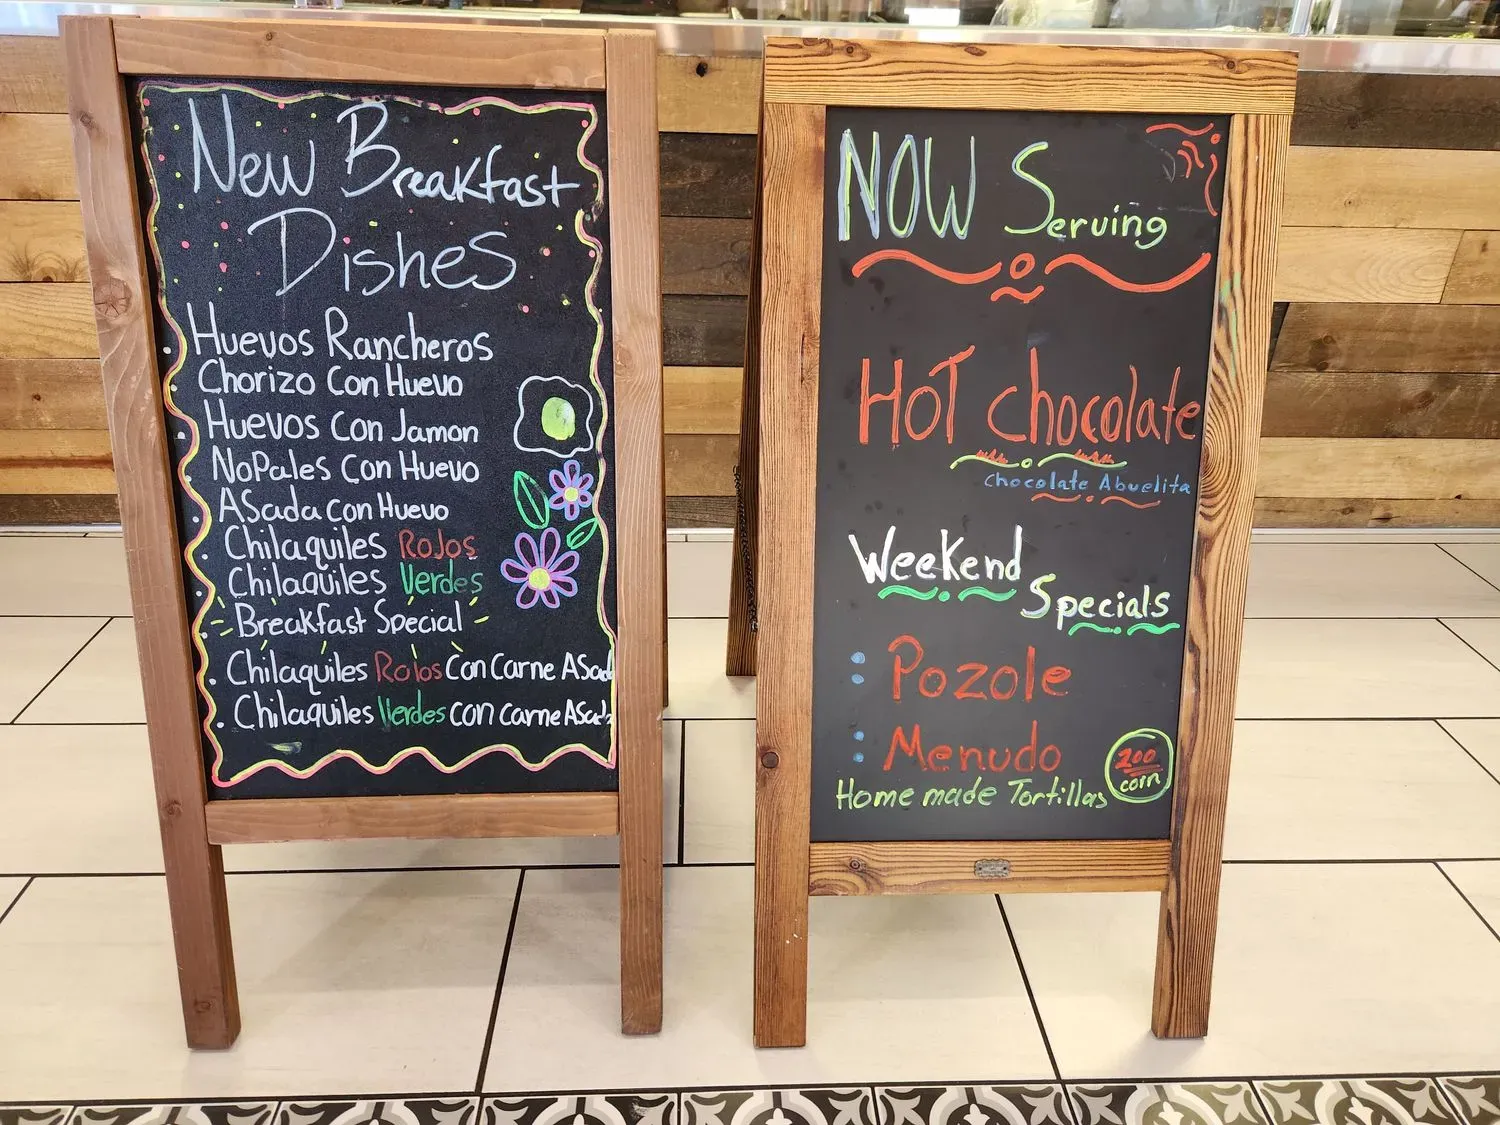 New Breakfast
Dishes
. Huevos Rancheros
. Chorizo Con Huevo
. Huevos Con Jamon
. Nopales Con Huevo
. Asada Con Huevo
. Chilaquiles Rojos
. Chilaquiles Verdes
. Breakfast Special
. Chilaquiles Rojos Con Carne Asad
. Chilaquiles Verdes con Carne Asad
NOW Serving
HOT chocolate
chocolate Abuelita
Weekend
Specials
: Pozole
: Menudo
Home made Tortillas
200
corn